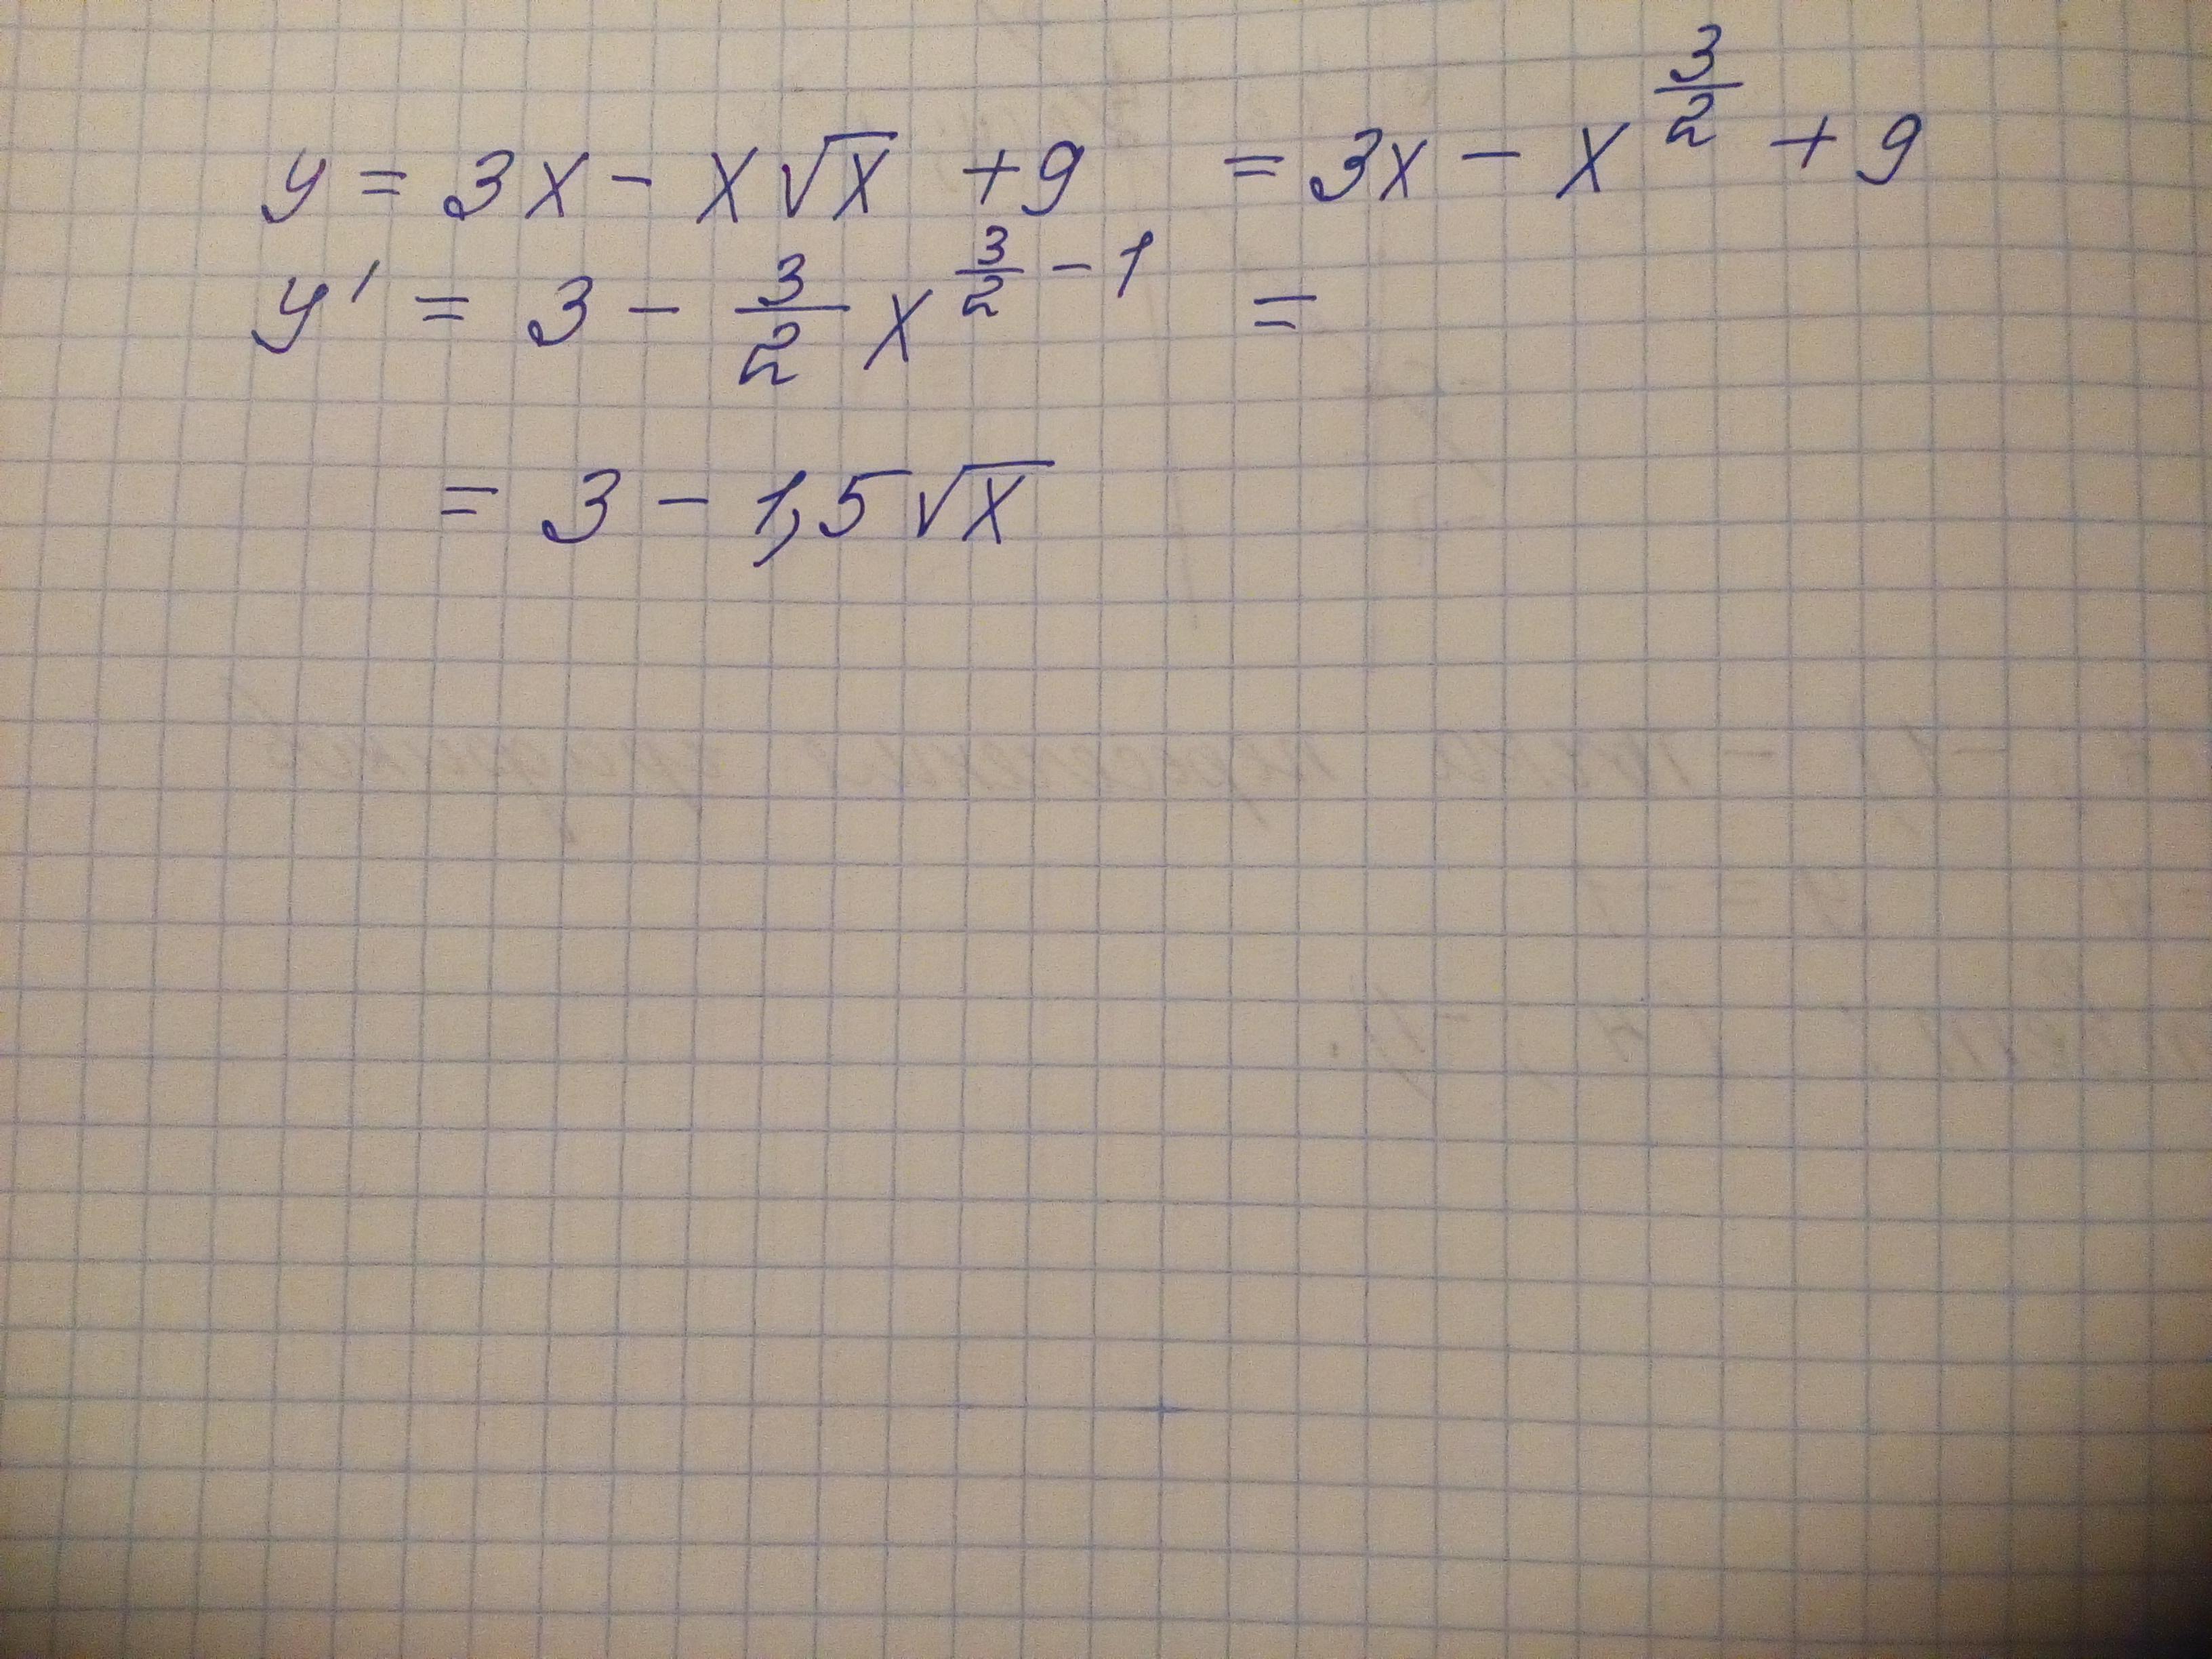 y = 3x - x√x + 9 = 3x - x^(3/2) + 9
y' = 3 - 3/2 x^(3/2 - 1) =
= 3 - 1,5√x